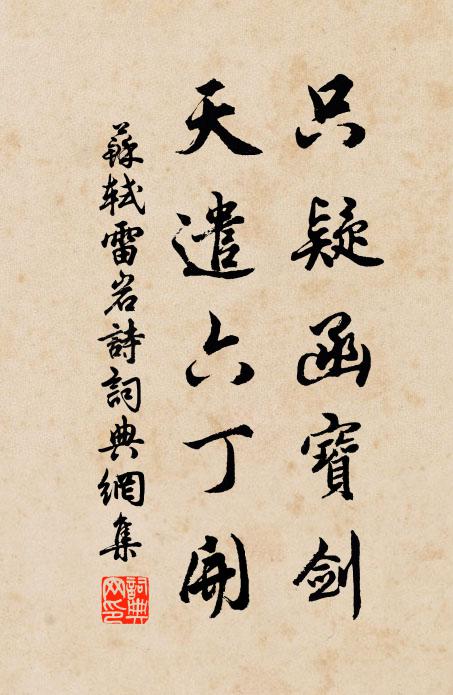 只疑函寶劍
天遣六丁開
蘇軾雷岩詩詞典網集
詞典
网印